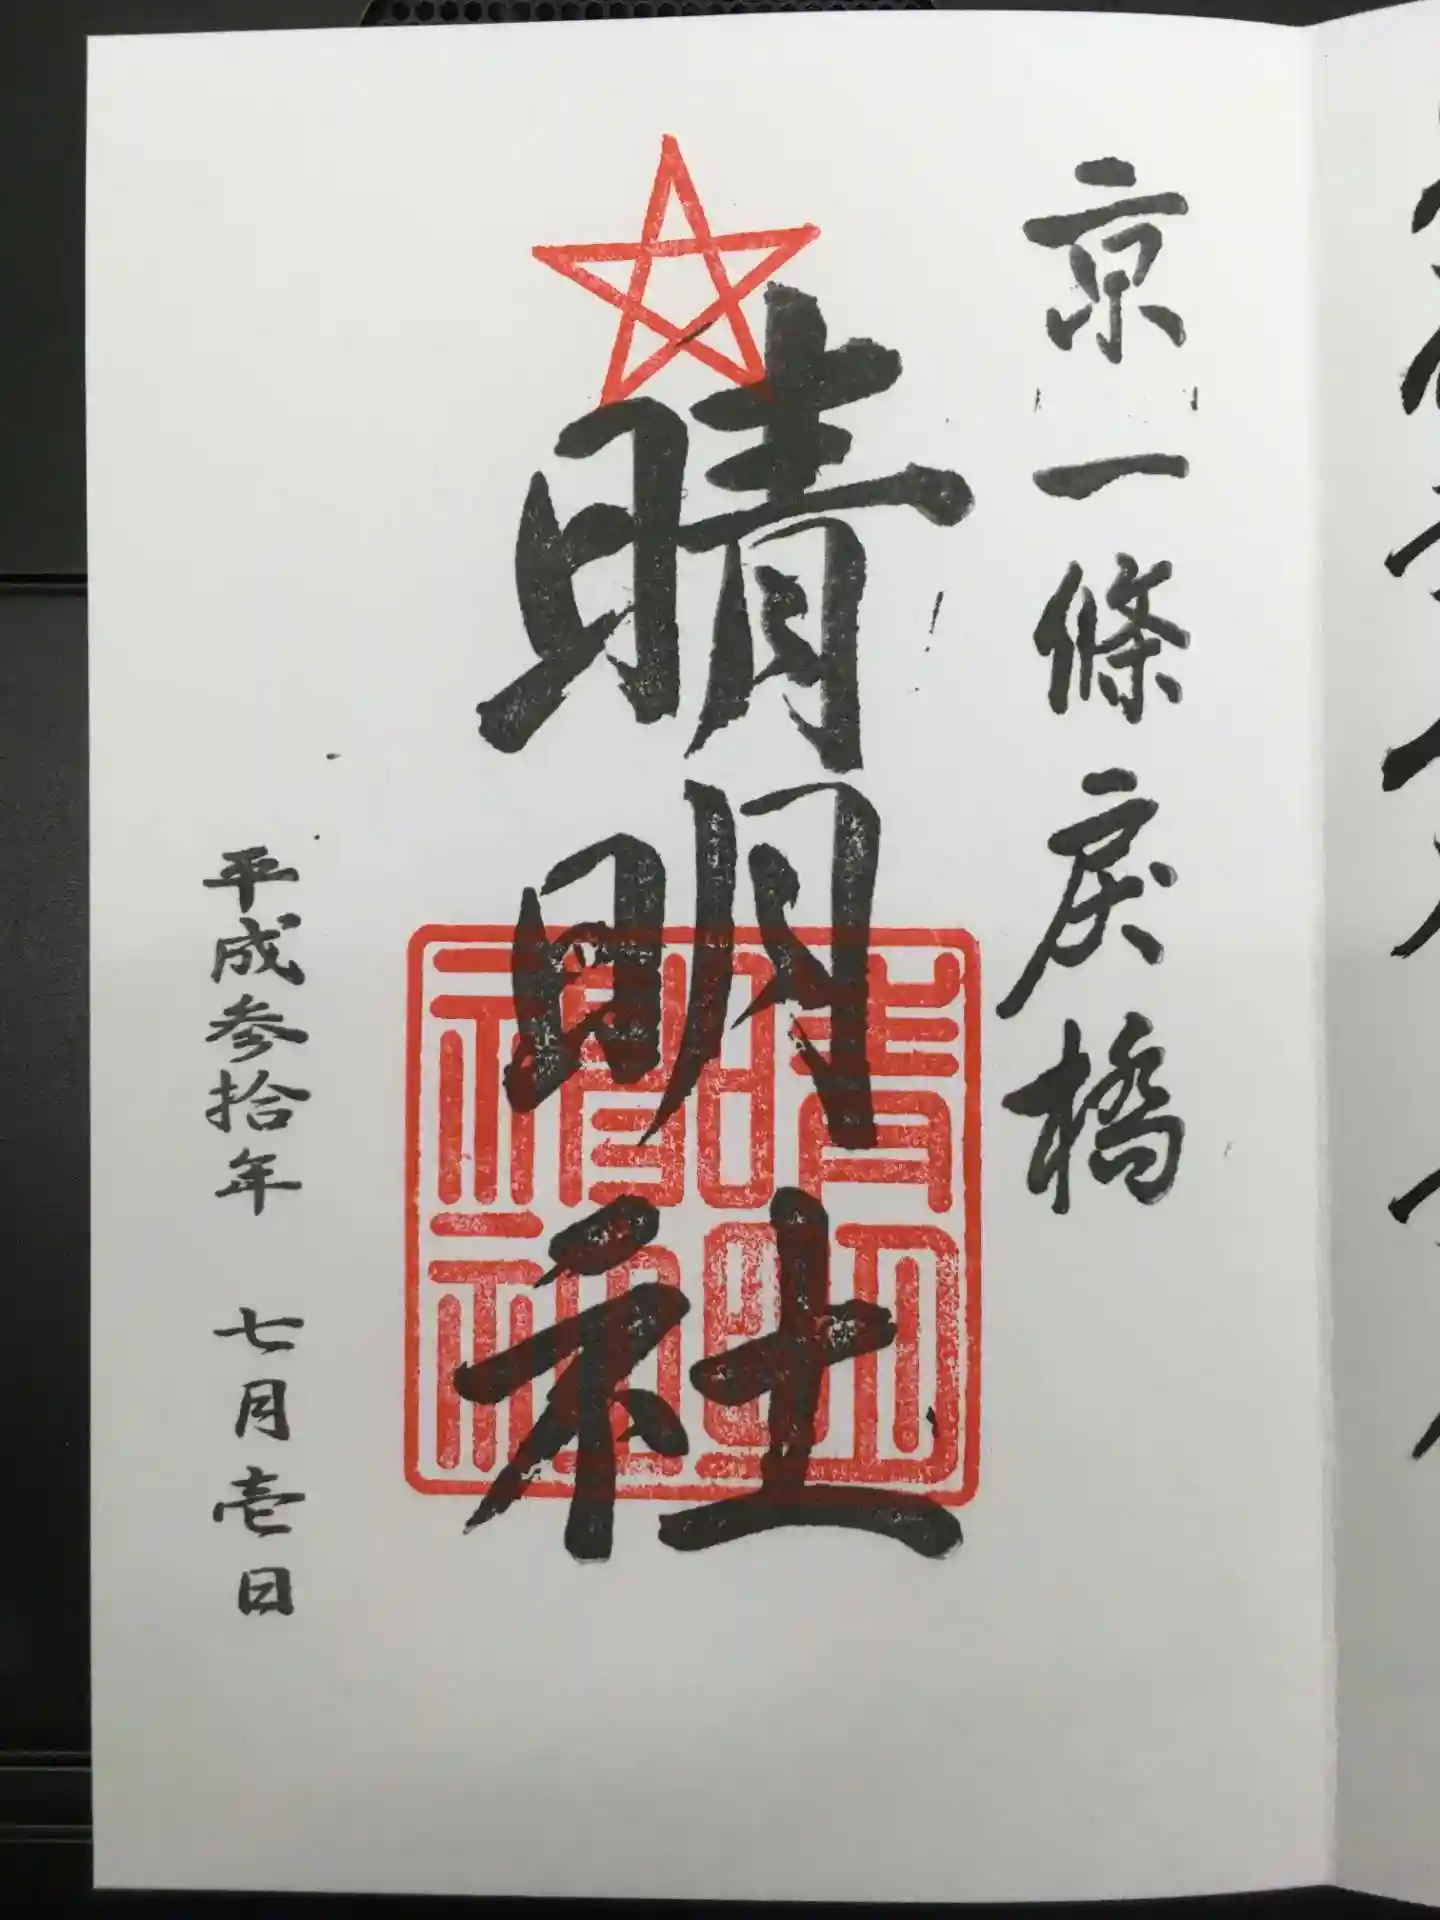 京一條戻橋
晴明社
晴明神社
平成参拾年 七月壱日